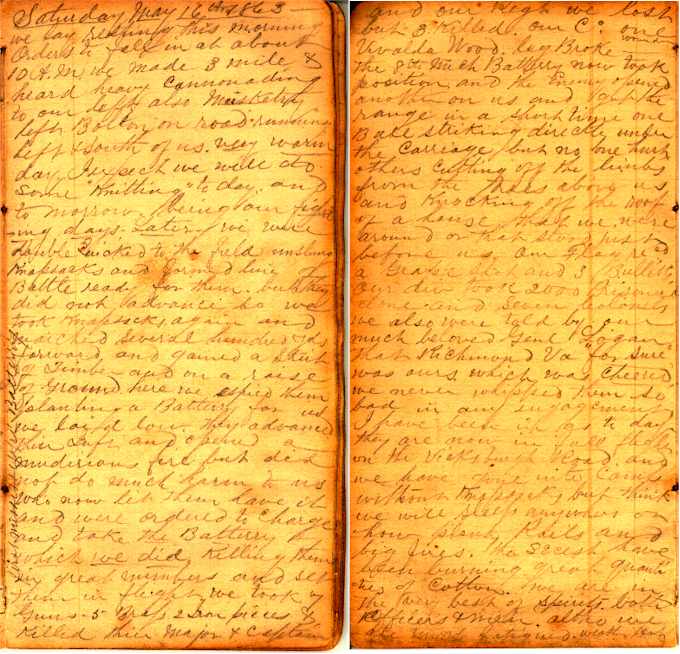 Saturday May 16th 1863
we lay resting this morning
Orders to fall in at about
10 A.M. we made 3 mile &
heard heavy Cannonading
to our left also Musketry
left Bolton on road running
left & South of us. very warm
day I expect we will do
some "Knitting" to day. and
to morrow being our fight
ing days. Later we were
double Quicked to the field unslung
Knapsacks and formed line of
Battle ready for them. but they
did not advance so we
took Knapsacks again and
marched several hundred yds
forward and gained a skirt
of Timber and on a raise
of Ground here we espied them
planting a Battery for us
we lay'd low. they advanced
their Left and opened a
murdirious fire but did
not do much harm to us
who now let them have it
and were ordered to Charge
and take the Battery
which we did, Killing them
in great numbers and set
them in flight we took 7
Guns 5 Brass 2 Iron pieces &
Killed their Major & Captain
and our Regt we lost
but 3 Killed. our Co one
wound
Wood. leg Broke
the 8th Mich Battery now took
position and the Enemy opened
another on us and got the
range in a short time one
Ball striking directly under
the Carriage but no one hurt
others Cutting off the limbs
from the trees above us
and Knocking off the roof
of a house that we were
around or that stood just
before us. our Flag re'd
a Grape shot and 3 Bullets
our div took 2000 Prisoners
Some and seven Colonels
we also were told by our
much beloved Genl "Logan"
that Richmond Va "for sure"
was ours. which was Cheered
we never whipped them so
bad in any engagement
I have been in as to day
they are now in full
on the Vicksburgh Road. and
we have gone into Camp
without Knapsacks but think
we will sleep anywhere on
how plenty Rails and
big fires. the Secesh have
been burning great quanti
ties of Cotton. We are in
the very best of spirits both
Officers & men. altho we
are fatigued